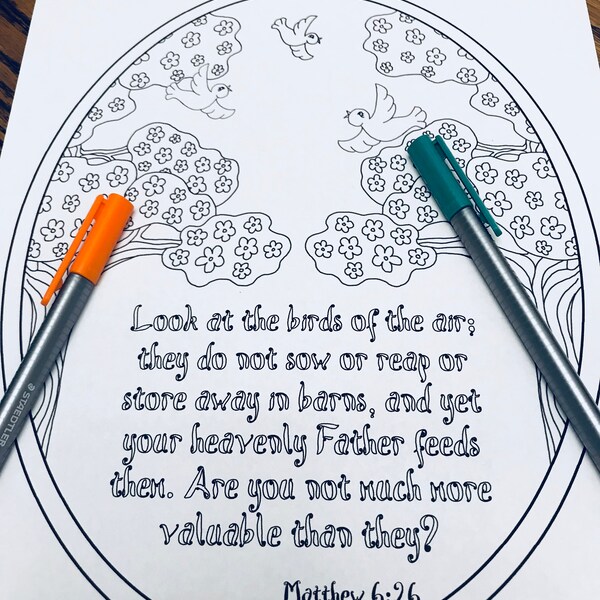 Look at the birds of the air;
they do not sow or reap or
store away in barns, and yet
your heavenly Father feeds
them. Are you not much more
valuable than they?
Matthew 6:26
STAEDTLER